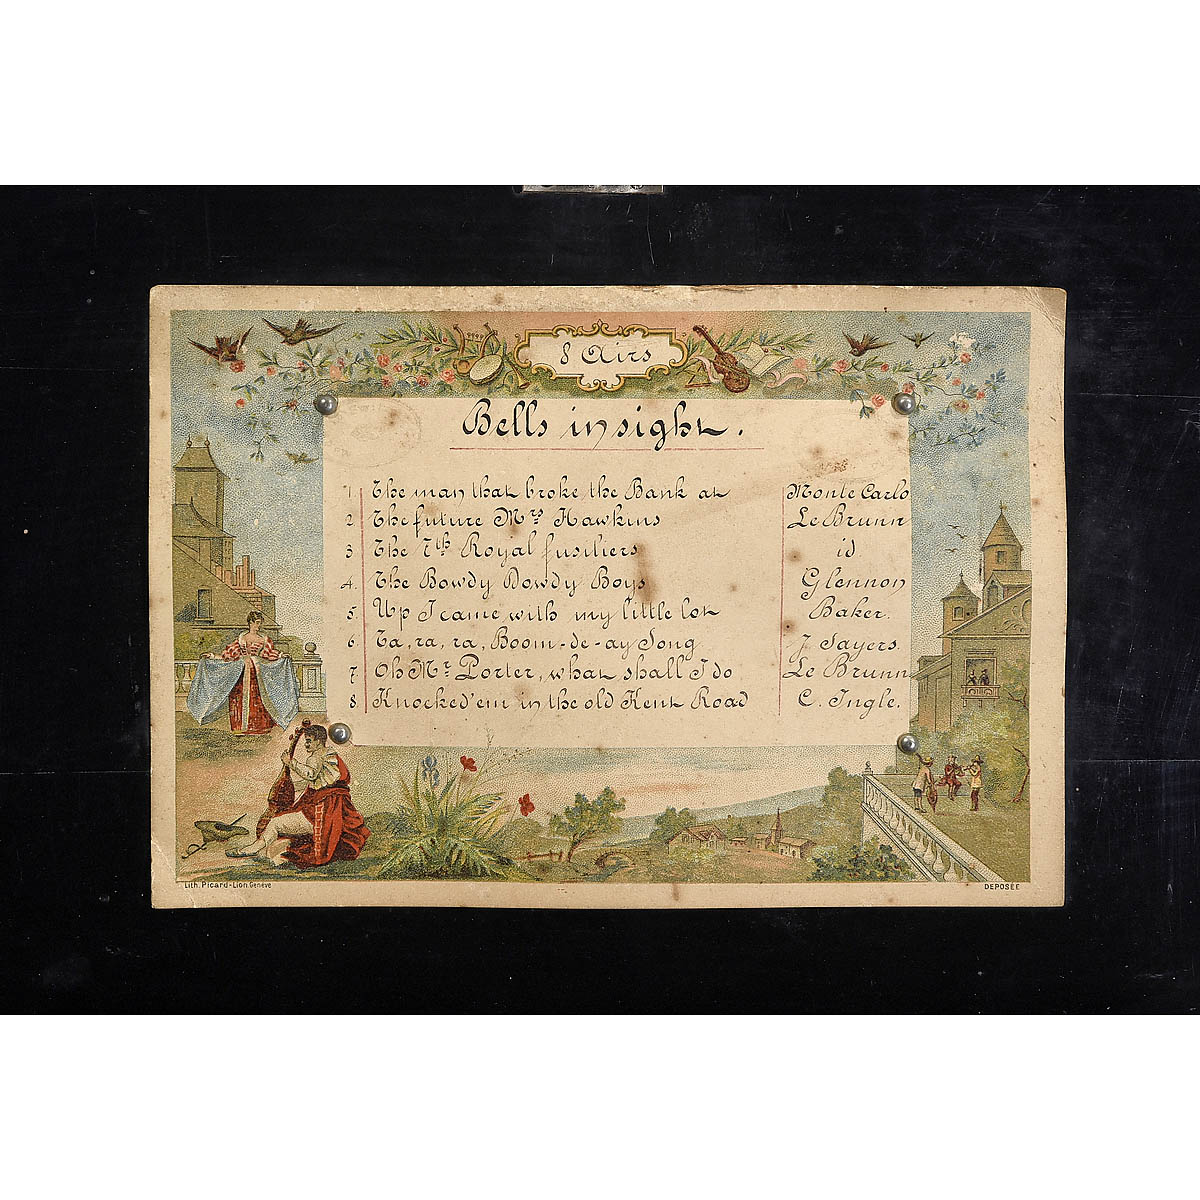 8 Airs
Bells in sight.
1 The man that broke the Bank at Monte Carlo
2 The future Mrs Hawkins Le Brunn
3 The 7th Royal fusiliers id
4. The Bowdy Dowdy Boys Glennon
5. Up I came with my little lot Baker.
6. Ta, ra, ra, Boom-de-ay Song J. Sayers.
7 Oh Mr. Porter, what shall I do Le Brunn
8 Knocked'em in the old Kent Road C. Ingle.
Lith. Picard-Lion, Genève
DEPOSÉE